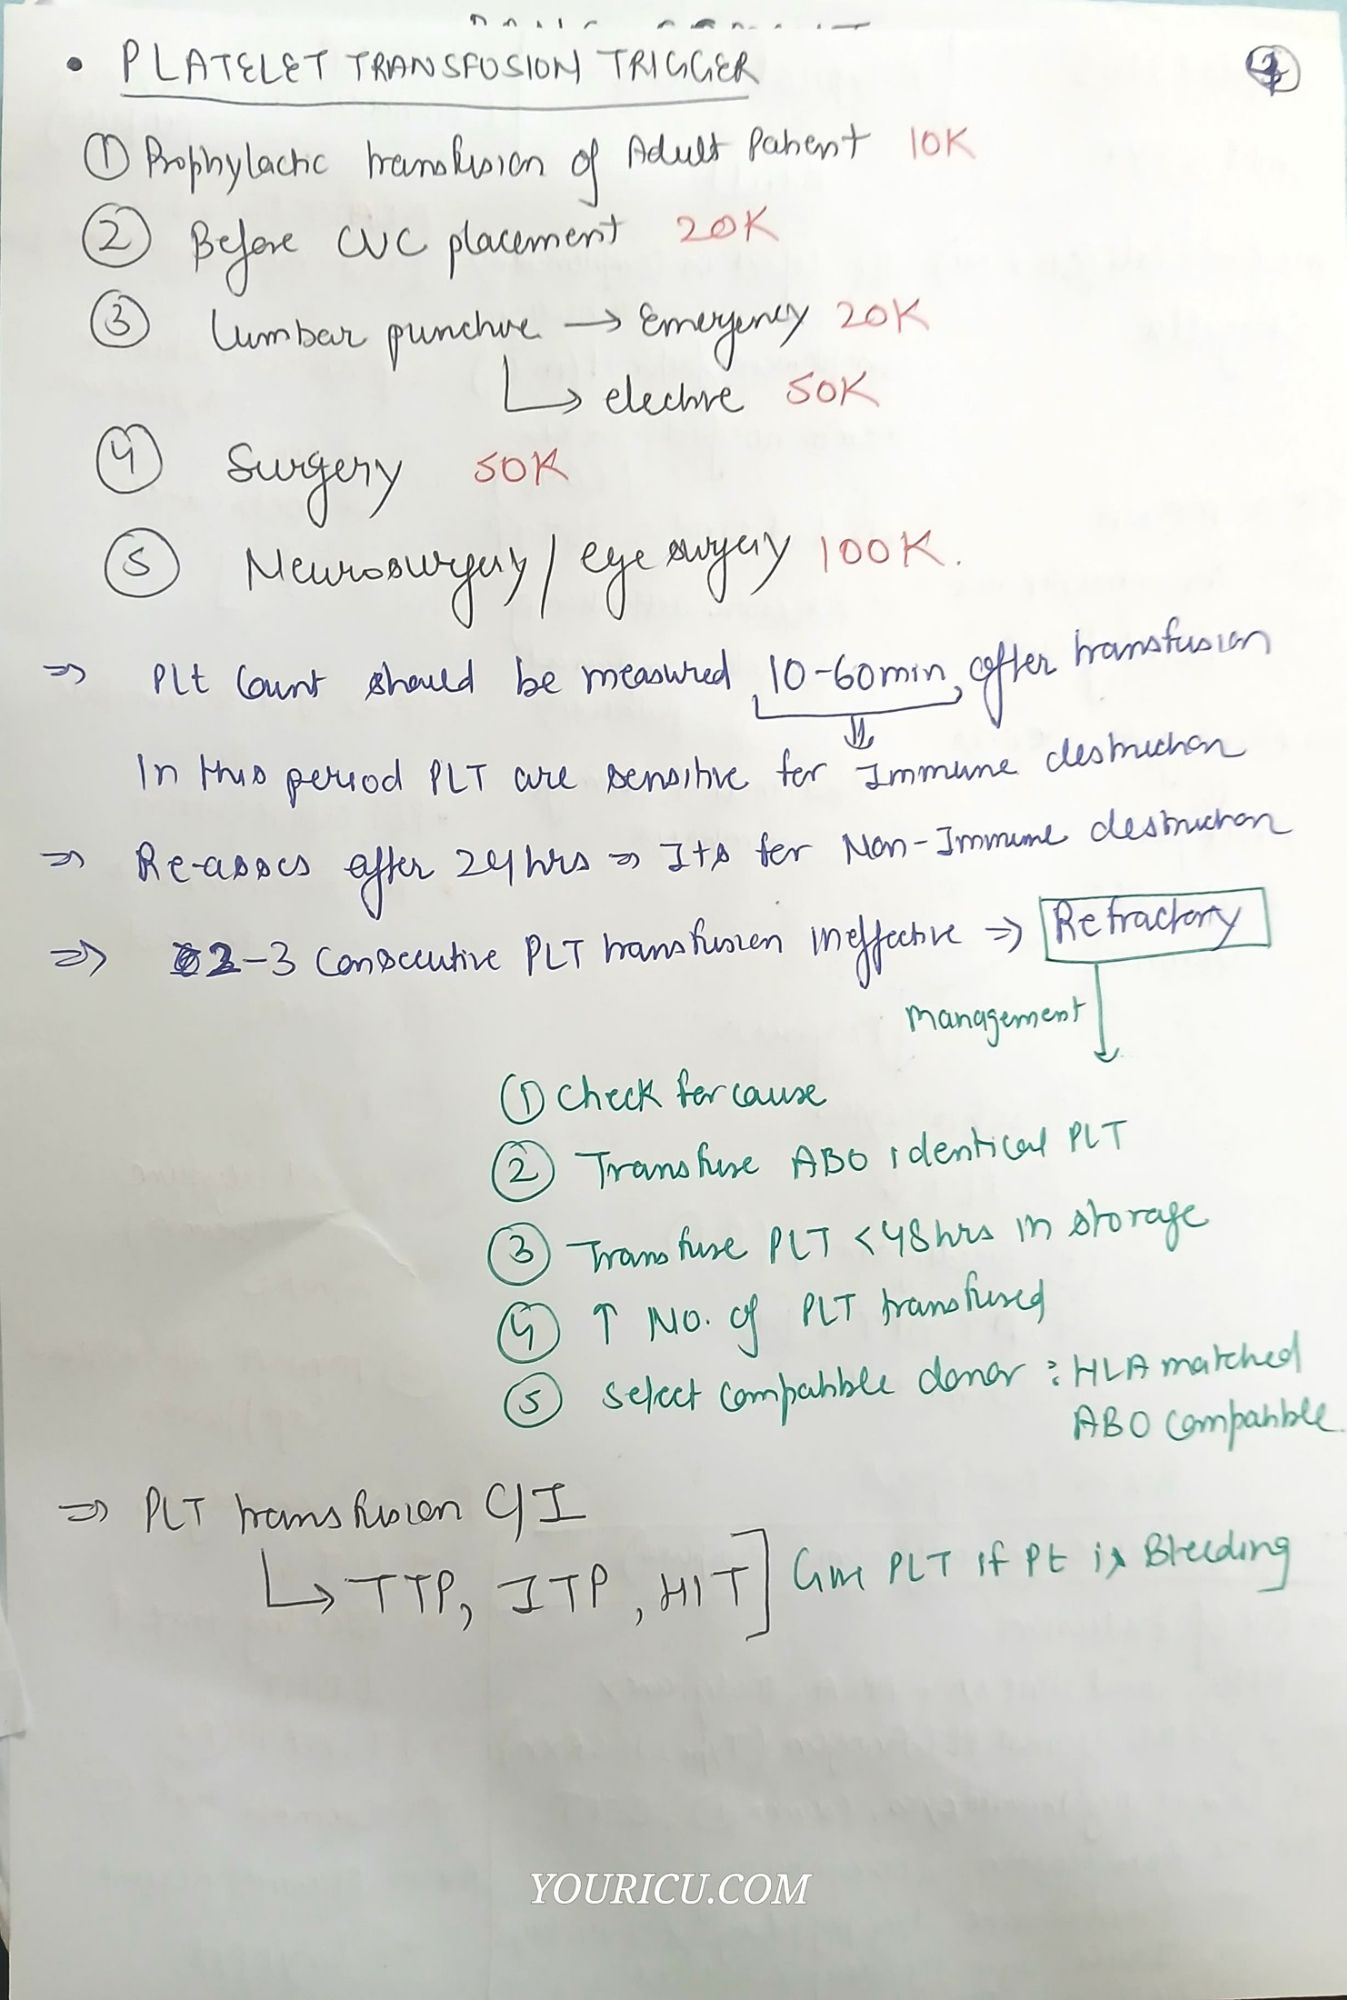 • PLATELET TRANSFUSION TRIGGER
① Prophylactic transfusion of Adult Patient 10K
② Before CVC placement 20K
③ Lumbar puncture → Emergency 20K
↳ elective 50K
④ Surgery 50K
⑤ Neurosurgery / eye surgery 100K.
⇒ PLt Count should be measured 10-60min after transfusion
⇓
In this period PLT are sensitive for Immune destruction
⇒ Re-asses after 24hrs ⇒ Its for Non-Immune destruction
⇒ 2-3 Consecutive PLT transfusion ineffective ⇒ Refractory
management
① Check for cause
② Transfuse ABO identical PLT
③ Transfuse PLT <48hrs in storage
④ ↑ No. of PLT transfused
⑤ Select compatible donor : HLA matched
ABO compatible.
⇒ PLT transfusion C/I
↳ TTP, ITP, HIT] Give PLT if Pt is Bleeding
YOURICU.COM